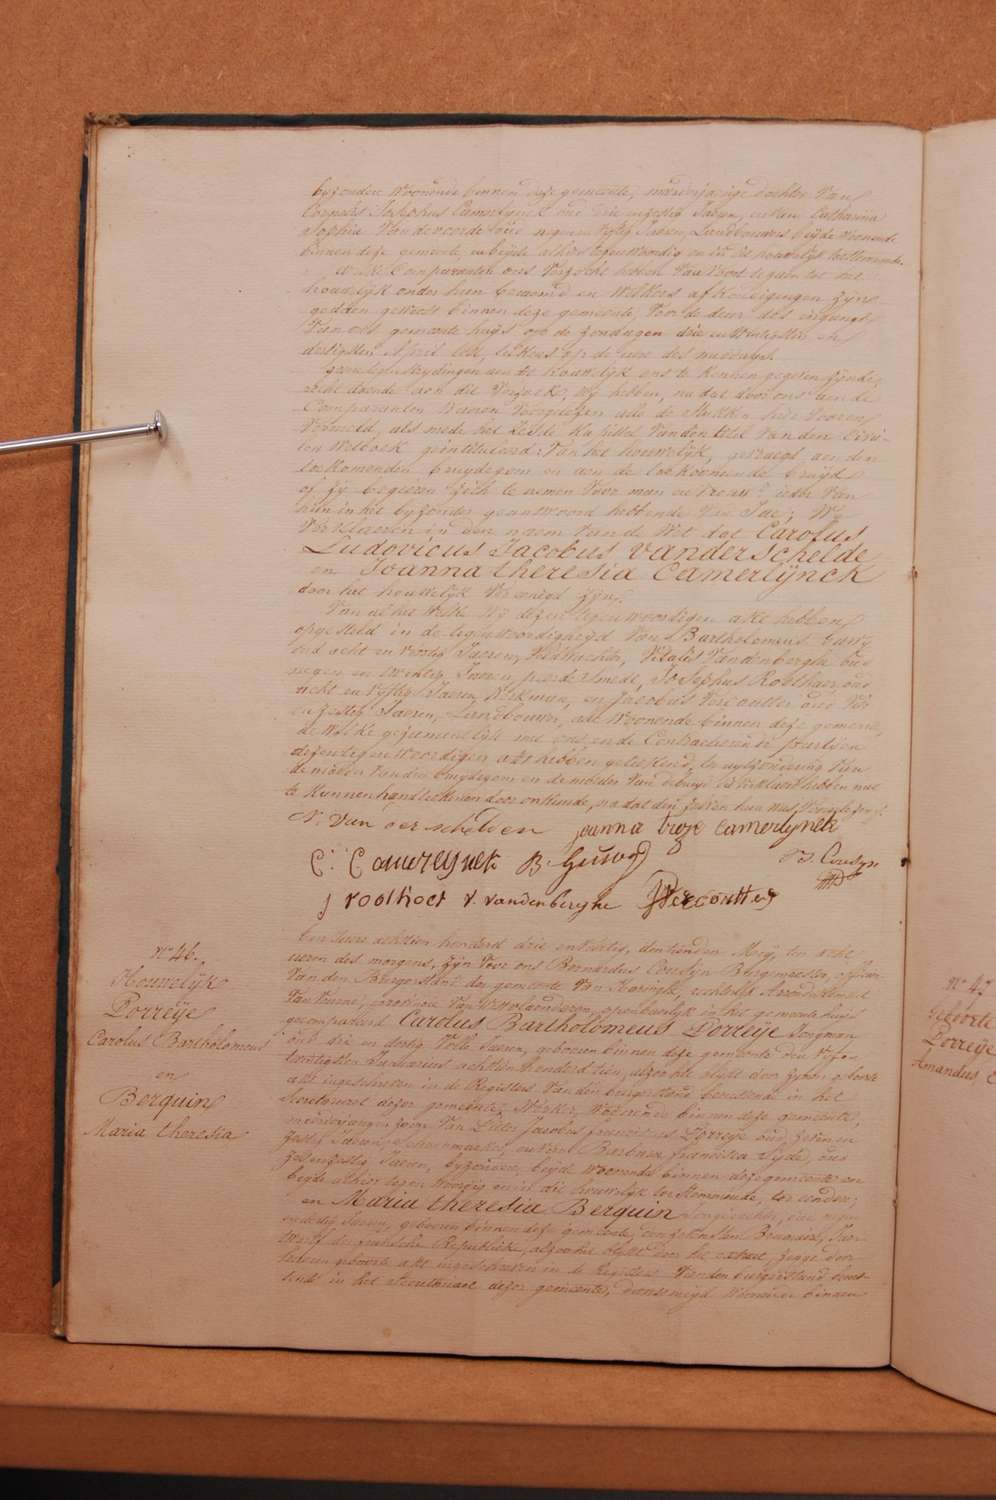 byzondere woonende binnen deze gemeente, meerderjarige dochter van
Cornelis Josephus Camerlynck oud zestig Jaeren, en van Catharina
Sophia Vandevoorde oud negen en vyftig Jaeren, Landbouwers beyde woonende
binnen deze gemeente, en beyde alhier tegenwoordig en in dit houwelyk toestemmende.
welke Comparanten ons verzocht hebben van voort te gaen tot het
houwelyk onder hun beraemd en welkers afkondigingen zyn
gedaen geweest binnen deze gemeente, voor de deur des ingangs
van ons gemeente huys op de zondagen drie en twintigsten en
dertigsten April lest, telkens op de ure des middags.
geene wederleydingen aen die houwelyk ons te kennen gegeven zynde,
recht doende aen dit verzoek, wy hebben, na dat door ons aen de
Comparanten waeren voorgelezen alle de stukken hier vooren
vermeld, als mede het zesde kapittel van den titel van den Civi-
len Wetboek geintituleerd: van het houwelyk, gevraegd aen den
toekomenden bruydegom en aen de toekomende bruyd
of zy begeeren zich te nemen voor man en vrouw? ieder van
hun in het byzonder geantwoord hebbende van Jae; wy
verklaeren in den naem van de wet dat Carolus
Ludovicus Jacobus vanderschelde
en Joanna theresia Camerlÿnck
door het houwelyk vereenigd zyn.
Van al het welke wy dezen tegenwoordigen akte hebben
opgesteld in de tegenwoordigheyd van Bartholomeus
oud acht en veertig Jaeren, Veldwachter, Vitalis Vandenberghe oud
negen en twintig Jaeren, peerdesmedt, Josephus Roolhoet, oud
acht en vyftig Jaeren, Werkman, en Jacobus Vercoutter oud
en zestig Jaeren, Landbouwer, alle woonende binnen deze gemeente,
de welke gezamentlyk met ons en de Contracteerende partyen
dezen tegenwoordigen akte hebben geteekend, ter uytzondering van
de moeder van den bruydegom en de moeder van de bruyd die verklaert hebben niet
te kunnen handteekenen door onkunde, na dat dezen hun was voorgelezen.
N. Van der schelden joanna treze camerlynck
C: C. Camerlynck B. B. Cousyn
j roolhoet v. vandenberghe J Vercoutter
N.º 46.
Houwelÿk
Dorreÿe
Carolus Bartholomeus
en
Berquin
Maria theresia
ten jaere achttien honderd drie en veertig, den tienden Mey, ten acht
ueren des morgens, zyn voor ons Bernardus Cousyn Burgemeester, officier
van den Burgerstand der gemeente van rechterlyk Arrondissement
van Veurne, provincie van Westvlaenderen, openbaerlyk in het gemeente huys
gecompareerd Carolus Bartholomeus Dorreÿe Jongman
oud drie en dertig volle Jaeren, geboren binnen deze gemeente den vyfen-
twintigsten Januarius achttien honderd tien, alzoo het blykt door zynen geboorte
akte ingeschreven in de Registers van den burgerstand berustende in het
Secretariaet dezer gemeente, Werker, woonende binnen deze gemeente,
meerderjaegen zoon van Pieter Jacobus franciscus Dorreye oud zeven en
zestig Jaeren, Schoenmaeker, en van Barbara francisca Syde, oud
zes en zestig Jaeren, byzondere, beyde woonende binnen deze gemeente en
beyde alhier tegenwoordig en in dit houwelyk toestemmende, ter eender;
en Maria theresia Berquin Jongdochter, oud negen
en veertig Jaeren, geboren binnen deze gemeente, den
der fransche Republieke, alzoo het blykt door het extract
geboorte akte ingeschreven in de Registers van den burgerstand berust-
ende in het Secretariaet dezer gemeente, dienstmeyd woonende binnen
N.º 47
Geboorte
Dorreÿe
Amandus